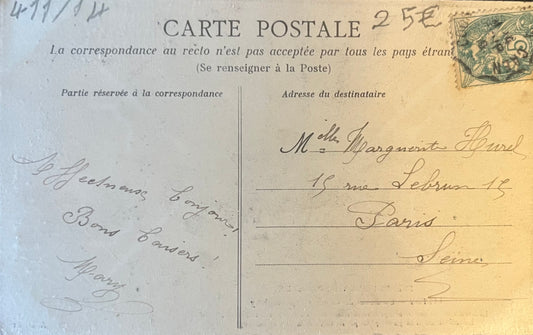 411/14
25€
CARTE POSTALE
La correspondance au recto n'est pas acceptée par tous les pays étran
(Se renseigner à la Poste)
Partie réservée à la correspondance
Adresse du destinataire
Melle Marguerite Hurel
15 rue Lebrun 15
Paris
Seine
Affectueux bonjour!
Bons baisers!
Mary